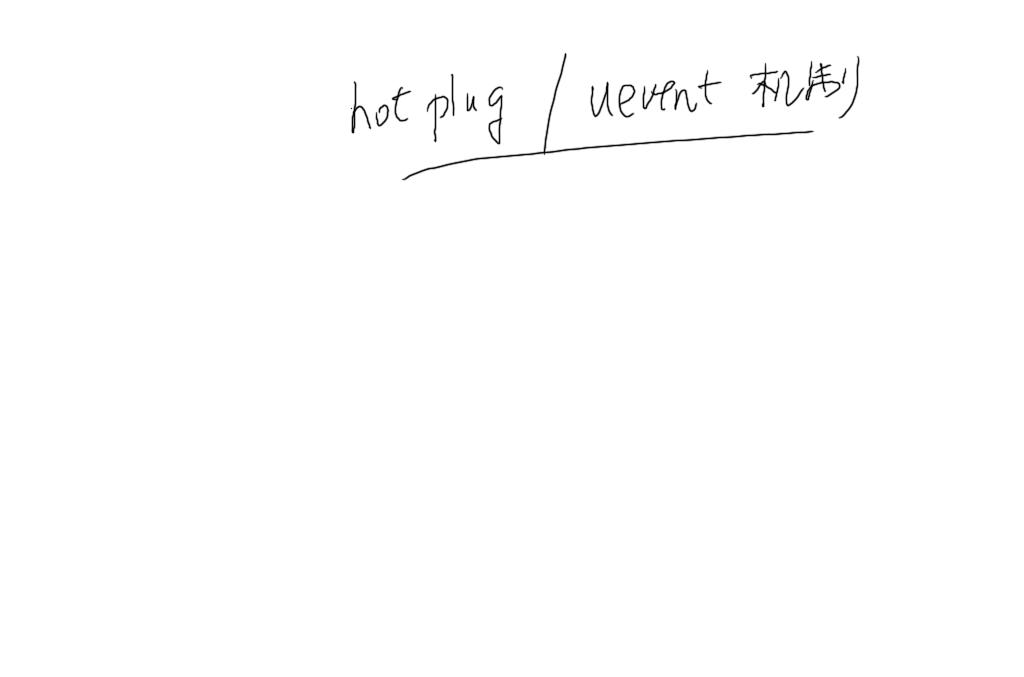 hot plug / uevent 机制